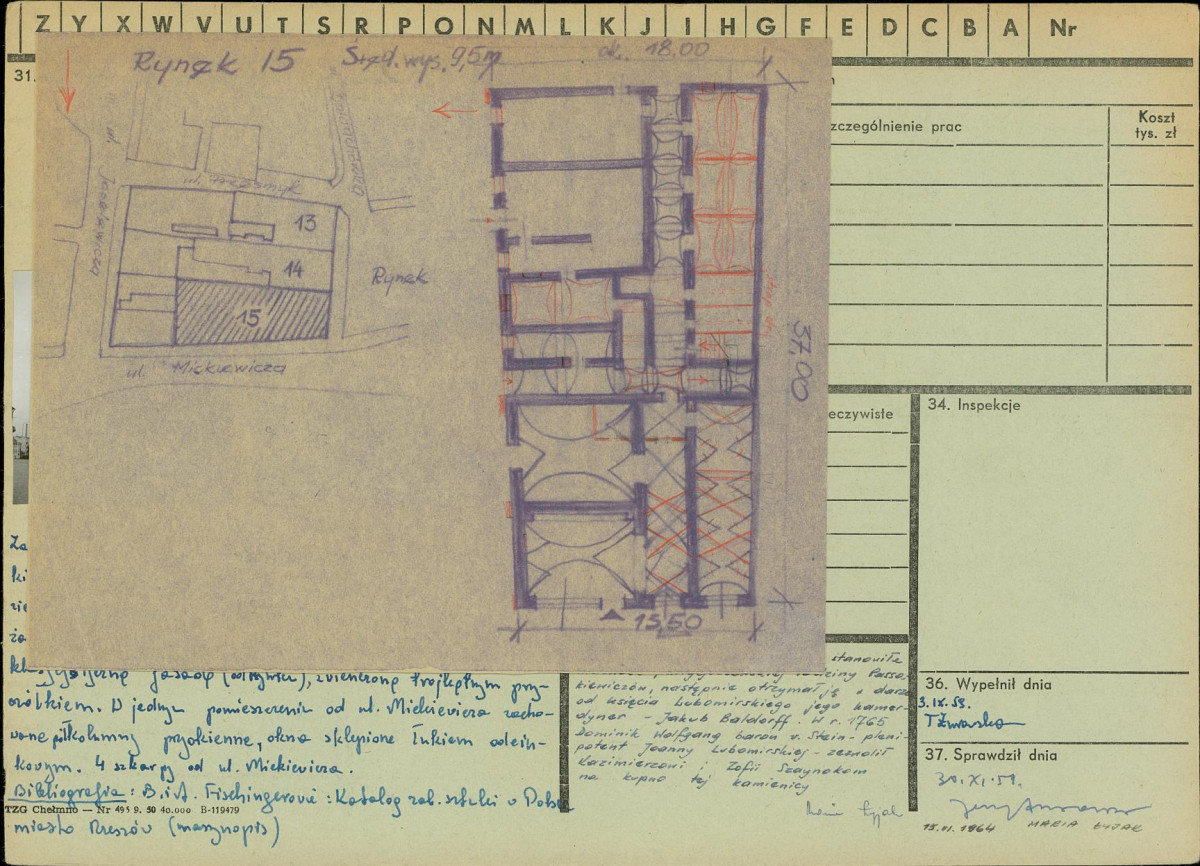 Z Y X W V U T S R P O N M L K J I H G F E D C B A Nr
Rynek 15 Śred. wys. 9,5m ok. 18.00
31.
zczególnienie prac
Koszt
tys. zł
13
14
15
Rynek
ul. Mickiewicza
37,00
15,50
eczywiste
34. Inspekcje
Za
ki
zie
fasadę
zwieńczoną trójlistnym przy-
czółkiem. W jednym pomieszczeniu od ul. Mickiewicza zacho-
wane półkolumny przyokienne, okna sklepione łukiem odcin-
kowym. 4 szkarpy od ul. Mickiewicza.
Bibliografia: B. i A. Fischingerowie: Katalog zab. sztuki w Polsce
miasto Rzeszów (maszynopis)
TZG Chełmno – Nr 495 9. 50 40.000 B-119479
stanowiła
rodziny Passa-
kiewiczów, następnie otrzymał ją w darze
od księcia Lubomirskiego jego kamer-
dyner – Jakub Baldorff. W r. 1765
Dominik Wolfgang baron v. Stein – pleni-
potent Joanny Lubomirskiej – zezwolił
Kazimierzowi i Zofii Szaynokom
na kupno tej kamienicy
36. Wypełnił dnia
3.IX.59.
37. Sprawdził dnia
30.XI.59.
15.VI.1964 MARIA ŁYJAK